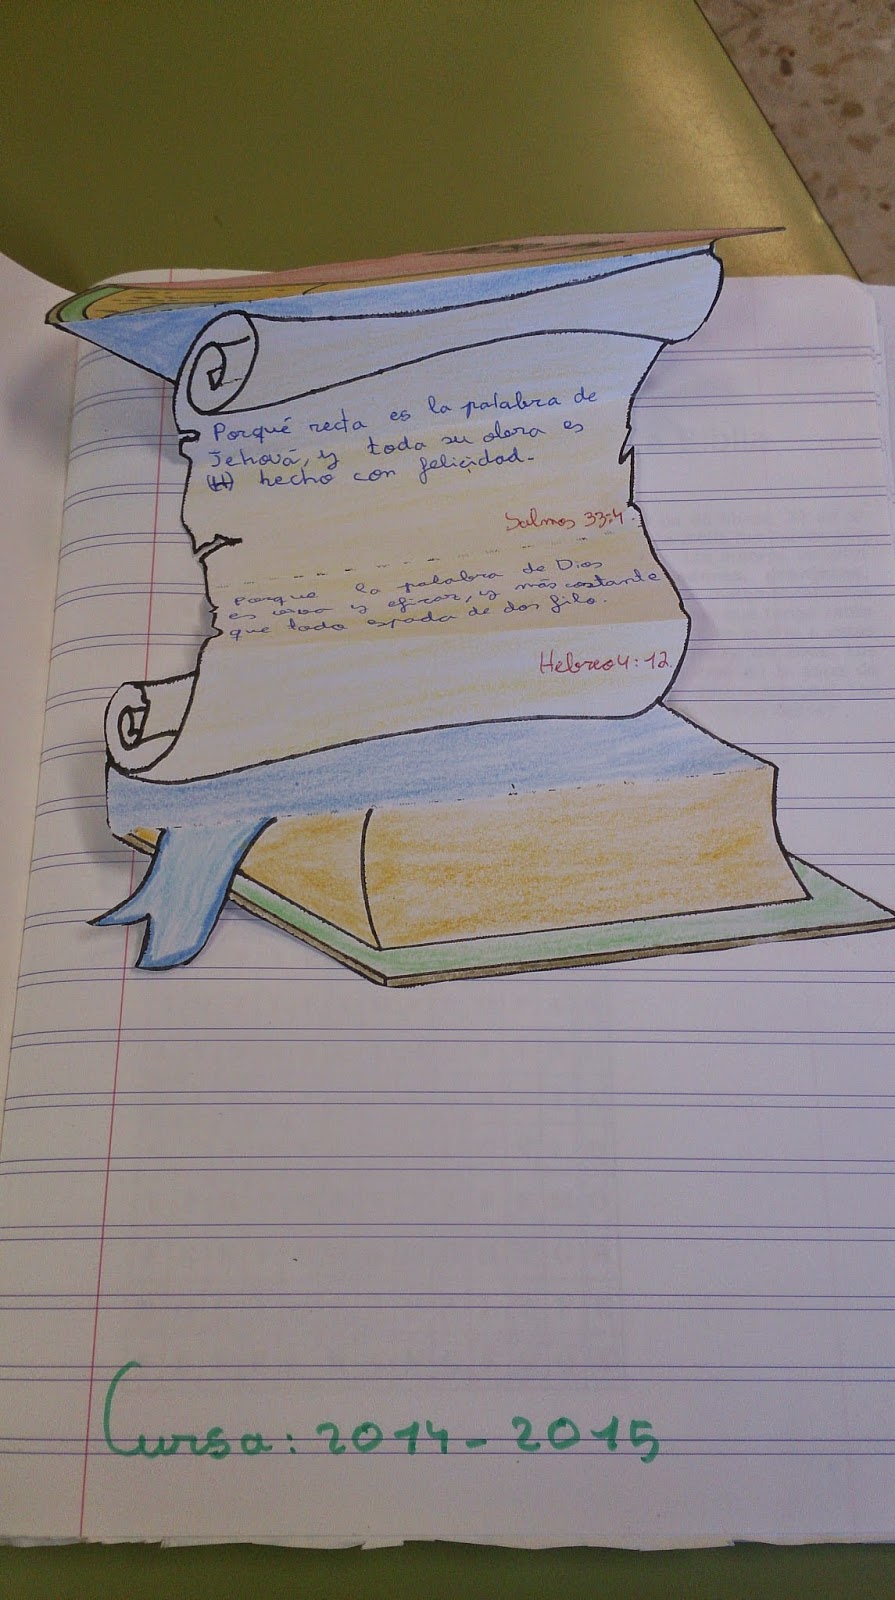 Porqué recta es la palabra de
Jehová, y toda su obra es
(H) hecho con felicidad.
Salmos 33:4.
Porque la palabra de Dios
es viva y eficaz, y más costante
que toda espada de dos filo.
Hebreo 4:12.
Cursa: 2014-2015